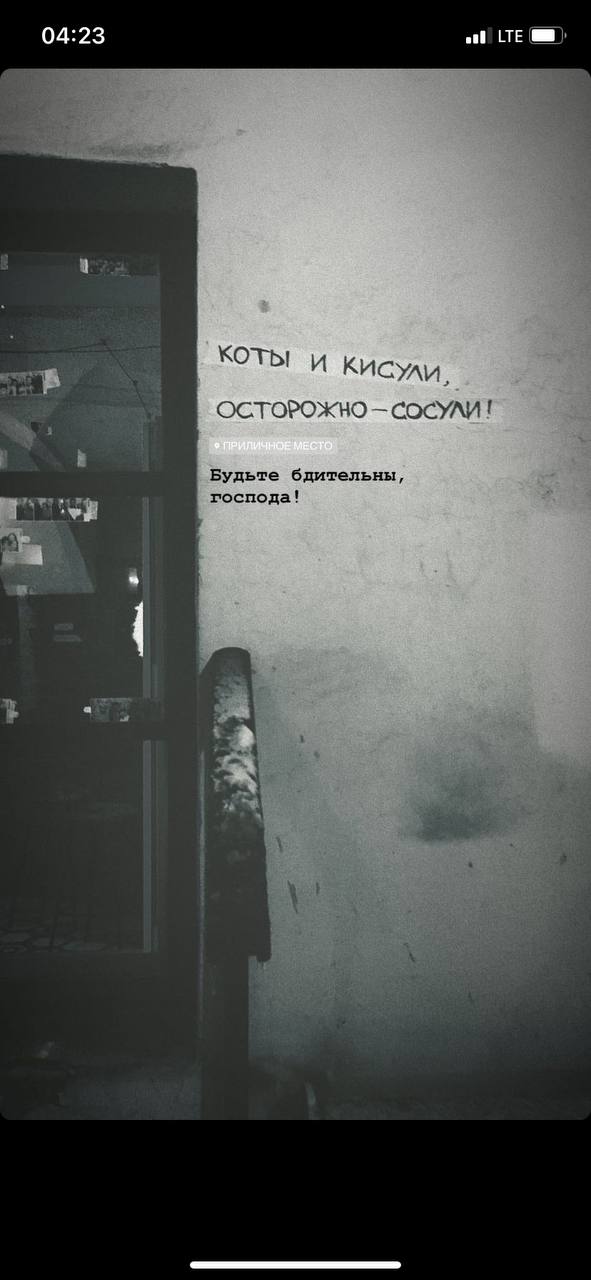 04:23
LTE
КОТЫ И КИСУЛИ,
ОСТОРОЖНО – СОСУЛИ!
ПРИЛИЧНОЕ МЕСТО
Будьте бдительны,
господа!